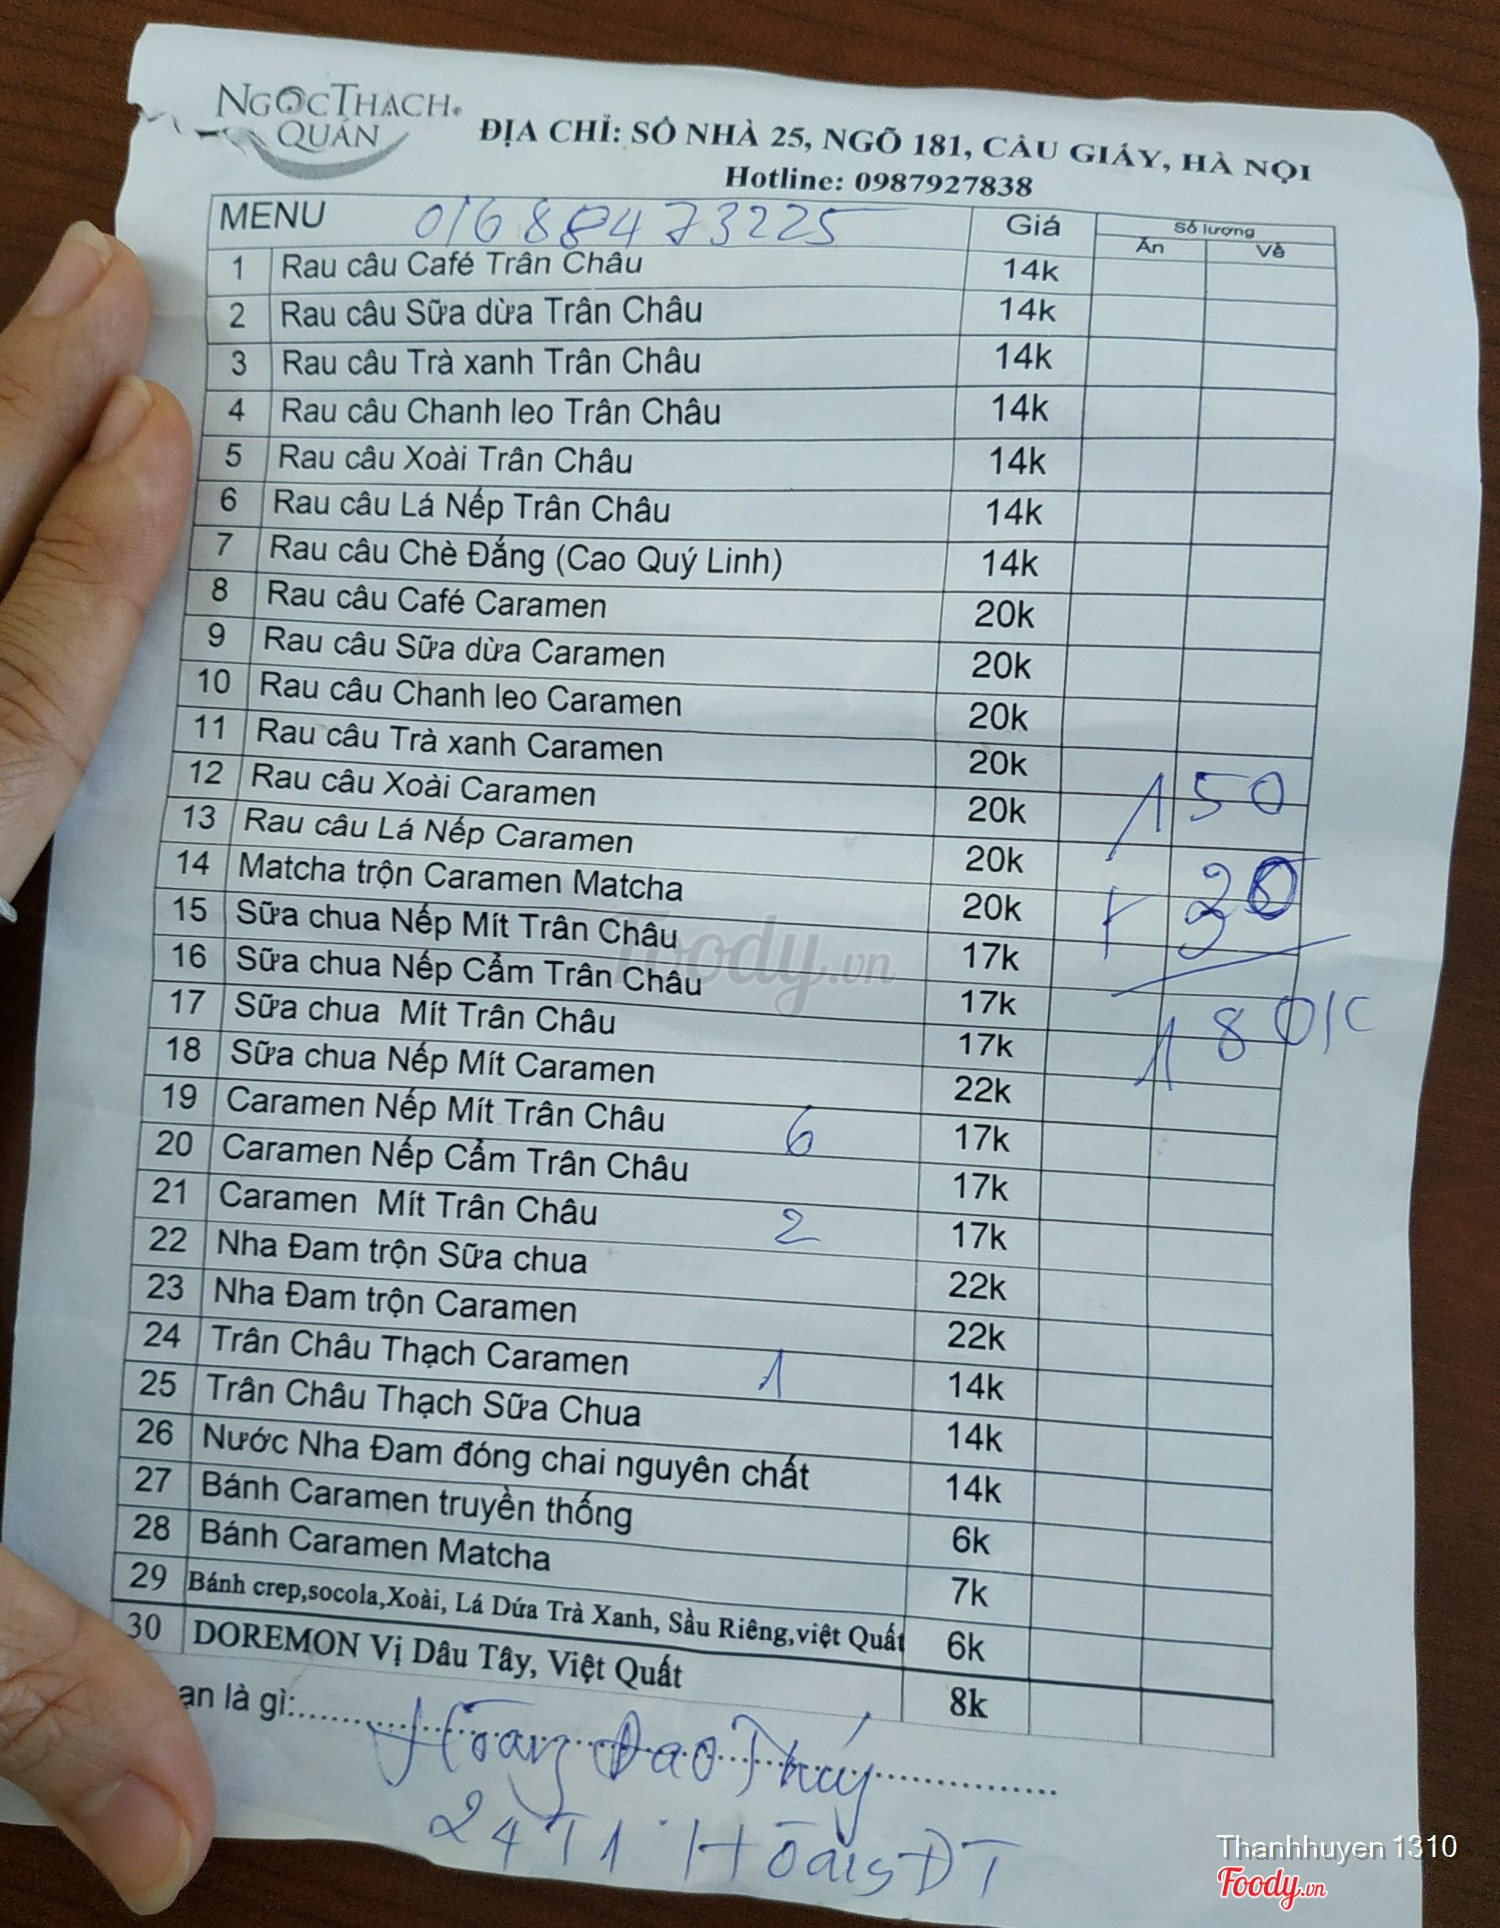 NGỌC THẠCH QUÁN
ĐỊA CHỈ: SỐ NHÀ 25, NGÕ 181, CẦU GIẤY, HÀ NỘI
Hotline: 0987927838
MENU 01688473225 Giá Số lượng
Ăn Về
1 Rau câu Café Trân Châu 14k
2 Rau câu Sữa dừa Trân Châu 14k
3 Rau câu Trà xanh Trân Châu 14k
4 Rau câu Chanh leo Trân Châu 14k
5 Rau câu Xoài Trân Châu 14k
6 Rau câu Lá Nếp Trân Châu 14k
7 Rau câu Chè Đắng (Cao Quý Linh) 14k
8 Rau câu Café Caramen 20k
9 Rau câu Sữa dừa Caramen 20k
10 Rau câu Chanh leo Caramen 20k
11 Rau câu Trà xanh Caramen 20k
12 Rau câu Xoài Caramen 20k
13 Rau câu Lá Nếp Caramen 20k
14 Matcha trộn Caramen Matcha 20k
15 Sữa chua Nếp Mít Trân Châu 17k
16 Sữa chua Nếp Cẩm Trân Châu 17k
17 Sữa chua Mít Trân Châu 17k
18 Sữa chua Nếp Mít Caramen 22k
19 Caramen Nếp Mít Trân Châu 6 17k
20 Caramen Nếp Cẩm Trân Châu 17k
21 Caramen Mít Trân Châu 2 17k
22 Nha Đam trộn Sữa chua 22k
23 Nha Đam trộn Caramen 22k
24 Trân Châu Thạch Caramen 1 14k
25 Trân Châu Thạch Sữa Chua 14k
26 Nước Nha Đam đóng chai nguyên chất 14k
27 Bánh Caramen truyền thống 6k
28 Bánh Caramen Matcha 7k
29 Bánh crep,socola,Xoài, Lá Dứa Trà Xanh, Sầu Riêng,việt Quất 6k
30 DOREMON Vị Dâu Tây, Việt Quất 8k
150
180k
an là gì:
Hoàng Đạo Thúy
24T1 Hoàng ĐT
Foody.vn
Thanhhuyen 1310
Foody.vn